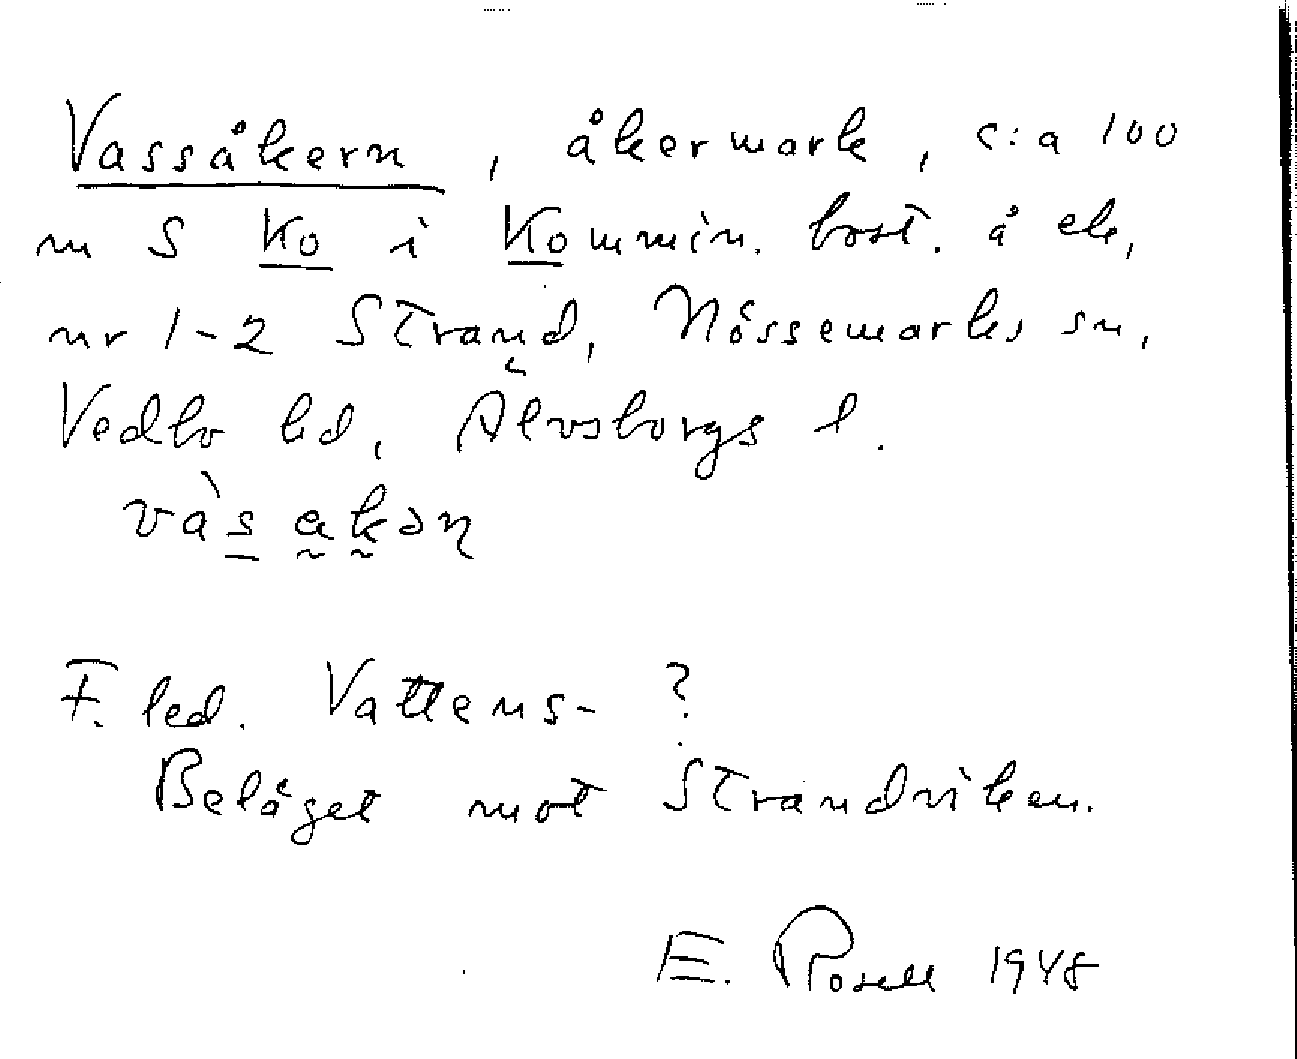 Vassåkern, åkermark, c:a 100
m S Ko i Kommin. bost. å ek.
nr 1-2 Strand, Nössemarks sn,
Vedbo hd, Älvsborgs l.
F. led. Vattens- ?
Beläget mot Strandviken.
E. Rosell 1948